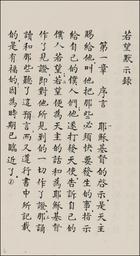 若望默示錄
第一章 序言 耶穌基督的啟示是天主
賜給他叫他把那些必須快要發生的事指示
給自己的僕人們他遂打發天使告訴自己的
僕人若望若望便為天主的話和為耶穌基督
作了見證即對他所見到的一切作了證那誦
讀和那些聽了這預言而又遵行書中所記載
的是有福的因為時期已臨近了